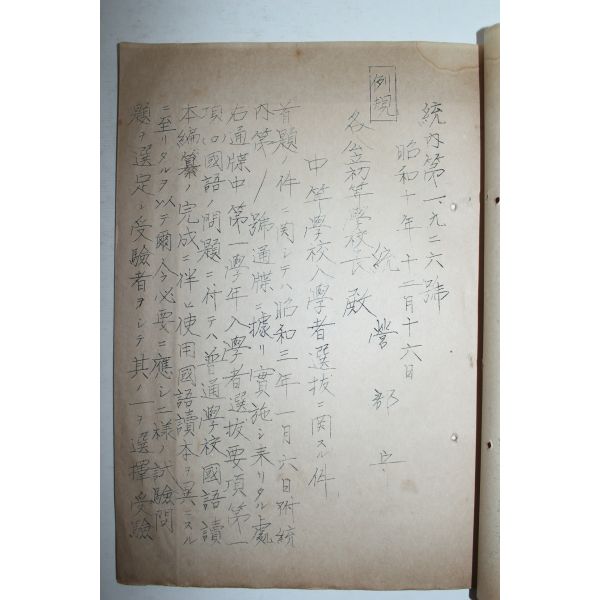 統內第一、九二六號
昭和十年十二月十六日
統營郡
例規
各公立初等學校長殿
中等學校入學者選拔ニ関スル件
首題ノ件ニ関シテハ昭和三年一月六日附統
內第一號通牒ニ據リ實施シ来リタル處
右通牒中第一學年入學者選拔要項第一
項(ロ)國語ノ問題ニ付テハ普通學校國語讀
本編纂ノ完成ニ伴ヒ使用國語讀本ヲ異ニスル
ニ至リタルヲ以テ爾今必要ニ應シ二様ノ試驗問
題ヲ選定シ受驗者ヲシテ其ノ一ヲ選擇受驗